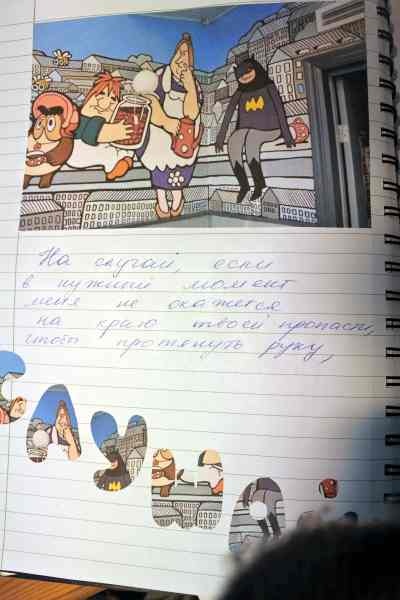 На случай, если
в нужный момент
меня не окажется
на краю твоей пропасти,
чтобы протянуть руку,
Слушай